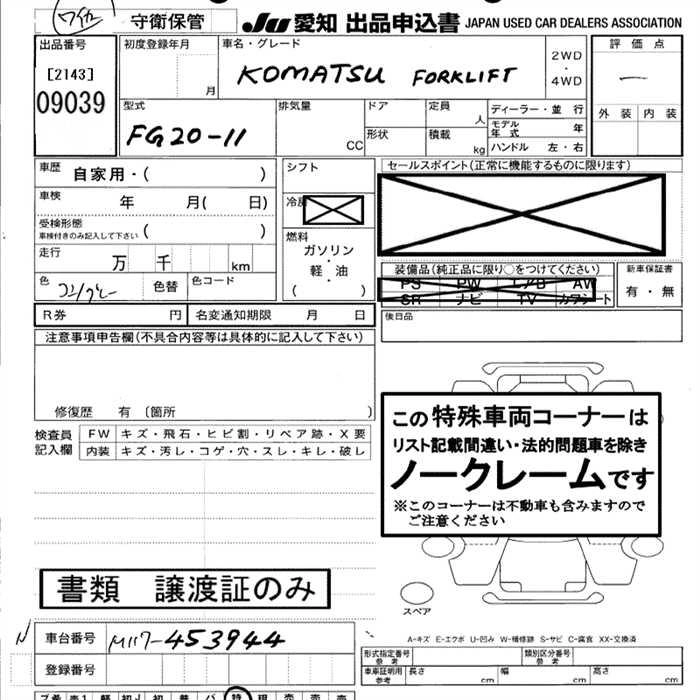 守衛保管 JU 愛知 出品申込書 JAPAN USED CAR DEALERS ASSOCIATION
出品番号
[2143]
09039
初度登録年月
月
車名・グレード
KOMATSU FORKLIFT
2WD
・
4WD
評価点
一
外装 内装
型式
FG20-11
排気量
CC
ドア
形状
定員
人
積載
kg
ディーラー・並行
モデル年式 年
ハンドル 左・右
車歴 自家用・( )
車検 年 月( 日)
受検形態
車検付きのみ記入して下さい ( )
走行 万 千 km
色
色替
色コード
シフト
冷房
燃料
ガソリン
・
軽・油
( )
セールスポイント(正常に機能するものに限ります)
装備品(純正品に限り○をつけてください)
PS PW エアB AW
SR ナビ TV カワシート
新車保証書
有・無
R券 円 名変通知期限 月 日
後日品
注意事項申告欄(不具合内容等は具体的に記入して下さい)
修復歴 有 〔箇所 〕
検査員
記入欄
FW キズ・飛石・ヒビ割・リペア跡・X要
内装 キズ・汚レ・コゲ・穴・スレ・キレ・破レ
この特殊車両コーナーは
リスト記載間違い・法的問題車を除き
ノークレームです
※このコーナーは不動車も含みますので
ご注意ください
書類 譲渡証のみ
スペア
A-キズ E-エクボ U-凹み W-補修跡 S-サビ C-腐食 XX-交換済
N
車台番号 M117-453944
登録番号
形式指定番号
参考
類別区分番号
参考
車車証明用
参考
長さ cm
幅 cm
高さ cm